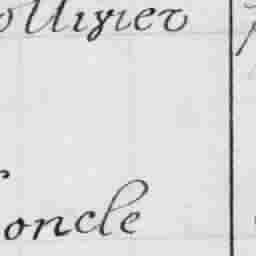 ollivier
oncle